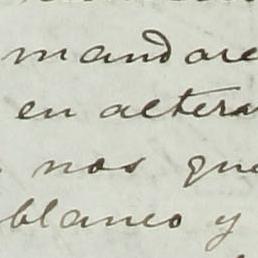 mandare
en altera
nos que
blanco y